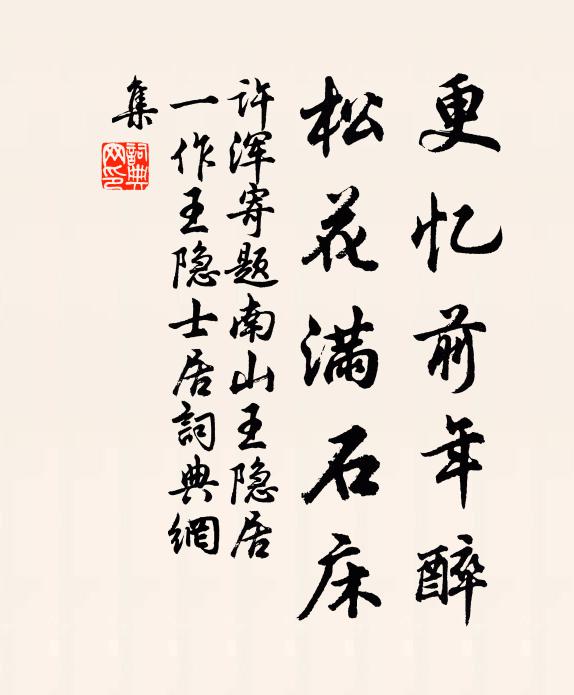 更忆前年醉
松花满石床
许浑寄题南山王隐居
一作王隐士居詞典網
集
詞典网印